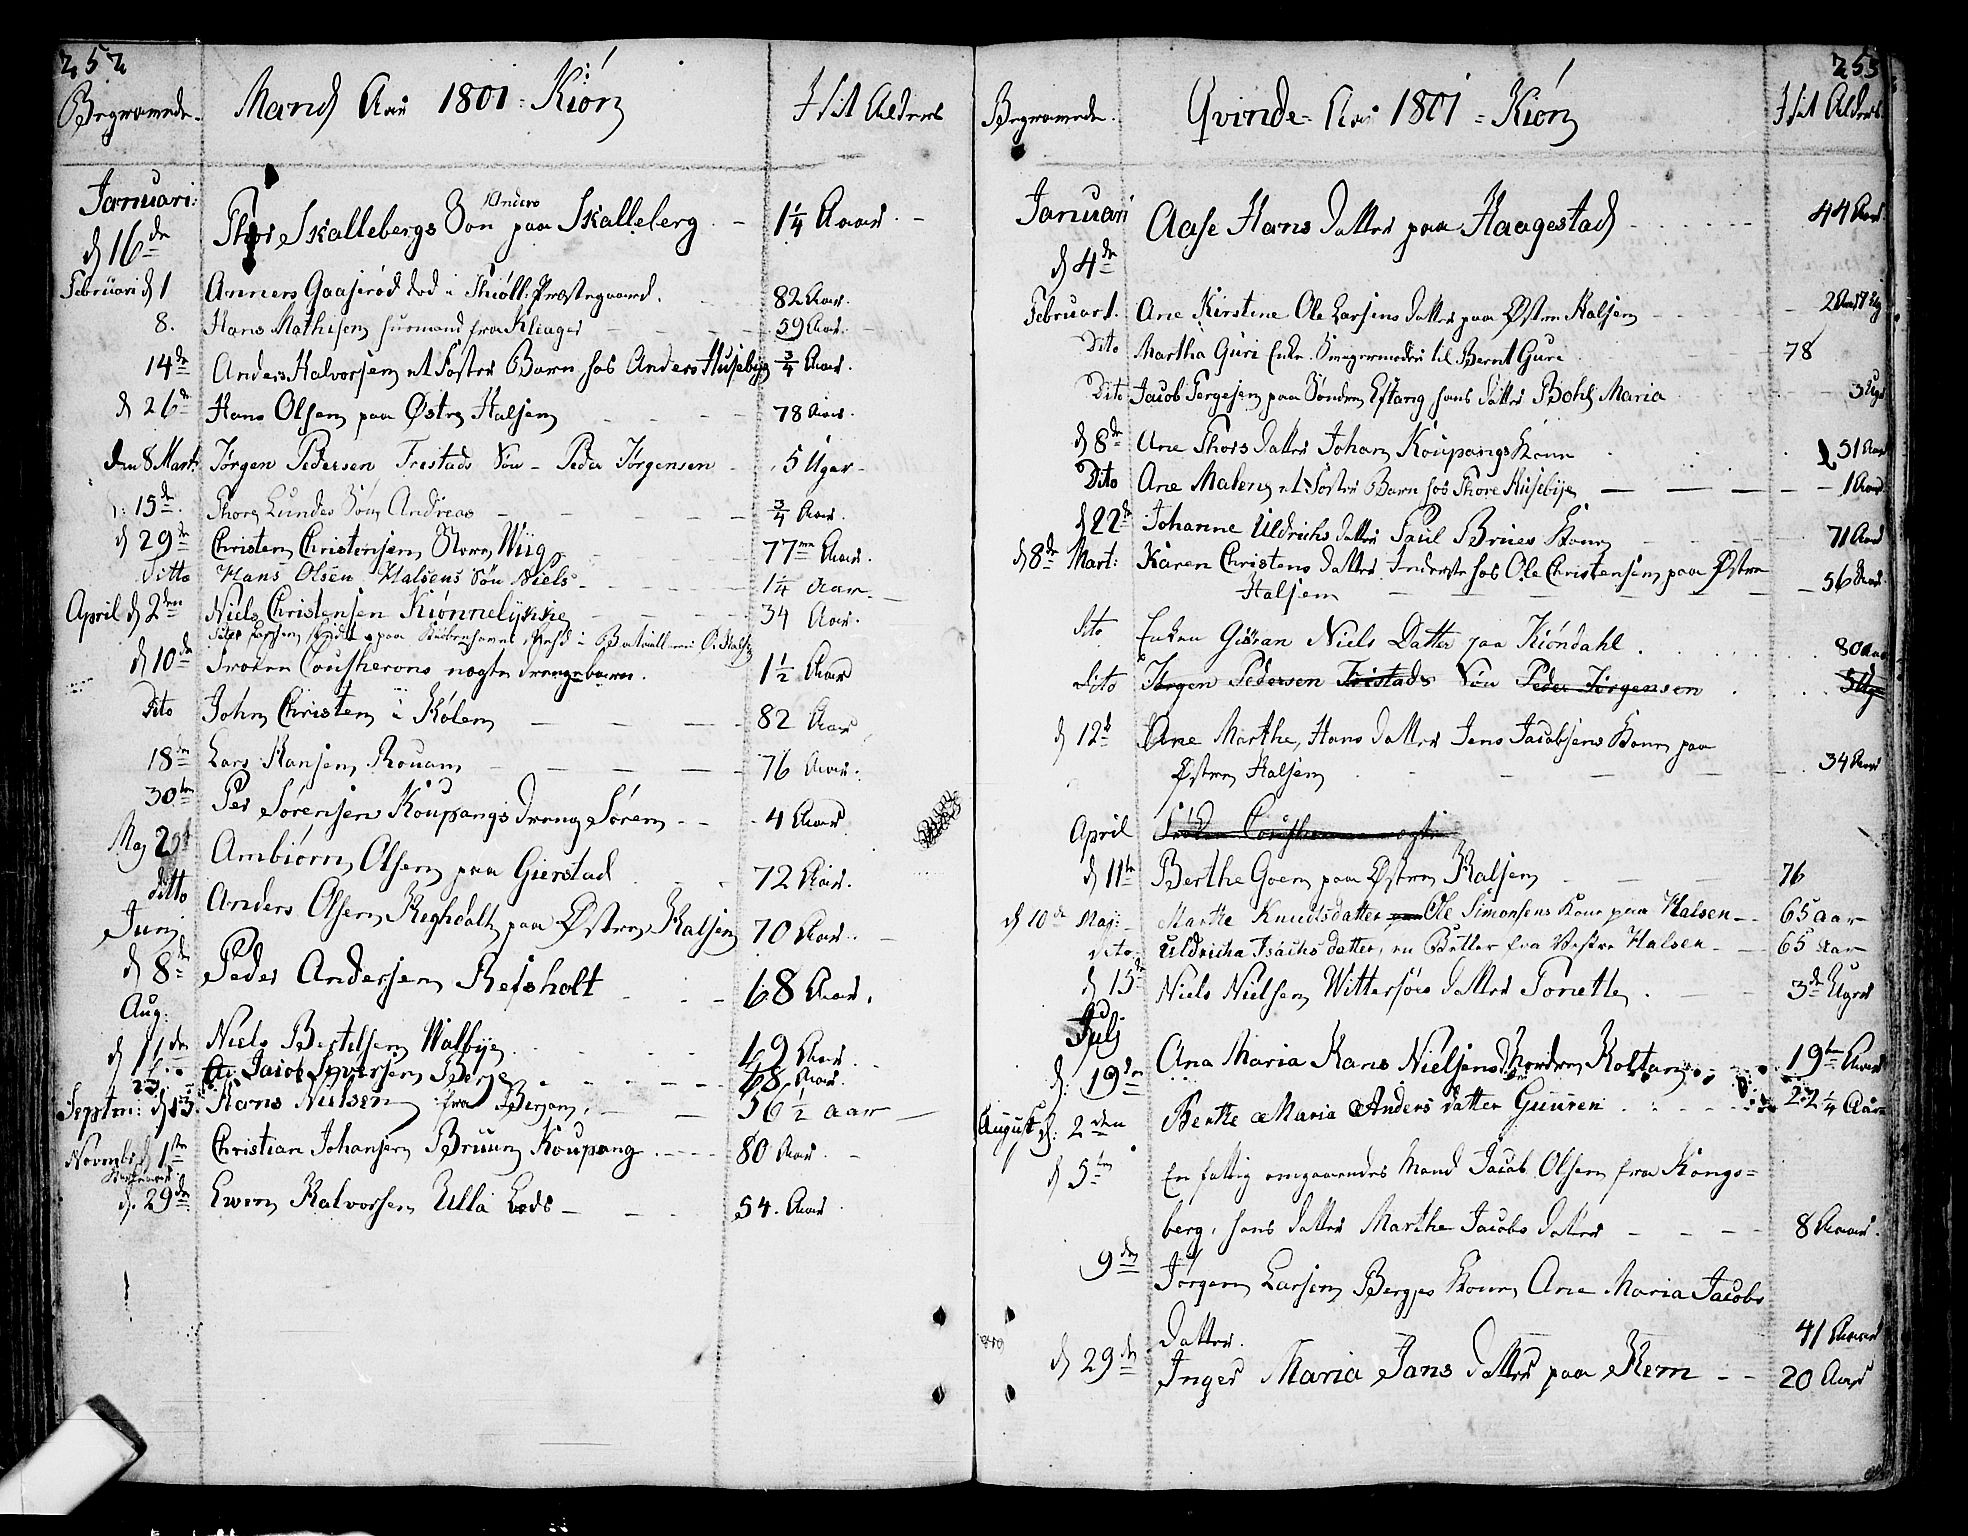 252
Begravne.
Mand Aar 1801 = Kiön
I sit Alders
Januari:
d 16de
Thor Skallebergs Søn Anders paa Skalleberg - 1 1/4 Aar -
Februari d 1 Anners Gaaserød død i Thiøll: Præstegaard. 82 Aar.
8. Hans Mathisen Huusmand fra Klinager 59 Aar.
14de Anders Halvorsen et Foster Barn hos Anders Husebye 3/4 Aar.
d 26de Hans Olsen paa Østre Halsen 78 Aar
den 8 Mart: Jørgen Pedersen Trestads Søn - Peder Jørgensen - 5 Uger -
d: 15de Thore Lundes Søn Andreas - 3/4 Aar.
d 29de Christen Christensen Store Wiig 77 Aar.
Ditto Hans Olsen Halsens Søn Niels - 1 1/4 Aar -
April d 2den Niels Christensen Kiønnelykke 34 Aar.
d 10de Frøken Coucherons uægte Drengebarn. 1 1/2 Aar
Dito John Christen i Kølen 82 Aar
18de Lars Hansen Rouam 76 Aar.
30te Per Sørensen Koupangs Dreng Søren - - 4 Aar
Maj 29d Ambiørn Olsen paa Gierstad 72 Aar.
ditto Anders Olsen Reghdalt paa Østre Halsen 70 Aar
Juni
d 8de Peder Andersen Reisholt - - - 68 Aar.
Aug:
d 11de Niels Bertelsen Walbye 49 Aar
Jacob Syversen Berge 68 Aar.
Septem: d 13. Hans Nielsen fra Bergan. 56 1/2 aar
Novemb: d 1ste Christian Johansen Bruun Koupang - - - 80 Aar. -
d. 29de Ewen Halvorsen Ulla Eeds - 54. Aar
253
Begravne.
Qvinde = Aar 1801 = Kiön
I sit Alders
Januari
d 4de Aase Hans datter paa Haagestad 44 Aar
Februari. Ane Kirstine Ole Larsens datter paa Østre Halsen
Dito Martha Guri Enke. Svigermoder til Bernt Gure 78
Dito Jacob Tergesen paa Søndre Estang hans datter Bohl Maria 3 Uger
d 8de Ane Thors datter Johan Koupangs Kone 51 Aar
Dito Ane Malene et Foster Barn hos Thore Husebye 1 Aar
d 22de Johanne Uldrichs datter Paul Brues Kone 71 Aar
d 8de Mart: Karen Christens datter Inderste hos Ole Christensen paa Østre
Halsen 56 Aar
dito Enken Giöran Niels Datter paa Kiøndahl 80 Aar
dito Jörgen Pedersen Tristads Søn Peder Jörgensen 5 Uge
d 12te Ane Marthe, Hans datter Jens Jacobsens Kone paa
Østre Halsen 34 Aar
April Frøken Coucherons uægte
d 11te Berthe Goen paa Østre Halsen 76
d 10de Maj: Marthe Knudsdatter Ole Simonsens Kone paa Halsen - 65 aar
dito Uldricha Isachs datter, en Betler fra Vestre Halsen - 65 Aar
d 15de Niels Nielsen Wittersøes datter Tonette. 3de Uger
Julj
d: 19den Ana Maria Hans Nielsens Nordre Holtan 19ten Aar
August d: 2den Berthe Maria Anders datter Guuren 22 1/4 Aar
d 5te En fattig omgaaendes Mand Jacob Olsen fra Kongs=
berg, hans datter Marthe Jacobs datter - - - - 8 Aar.
9de Jørgen Larsen Berges Kone Ane Maria Jacobs
datter. 41 Aar
d 29de Inger Maria Jans datter paa Hem - - 20 Aar